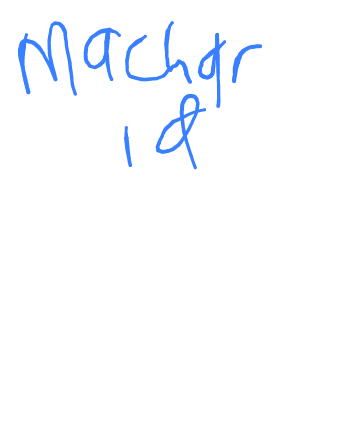 Machar
18